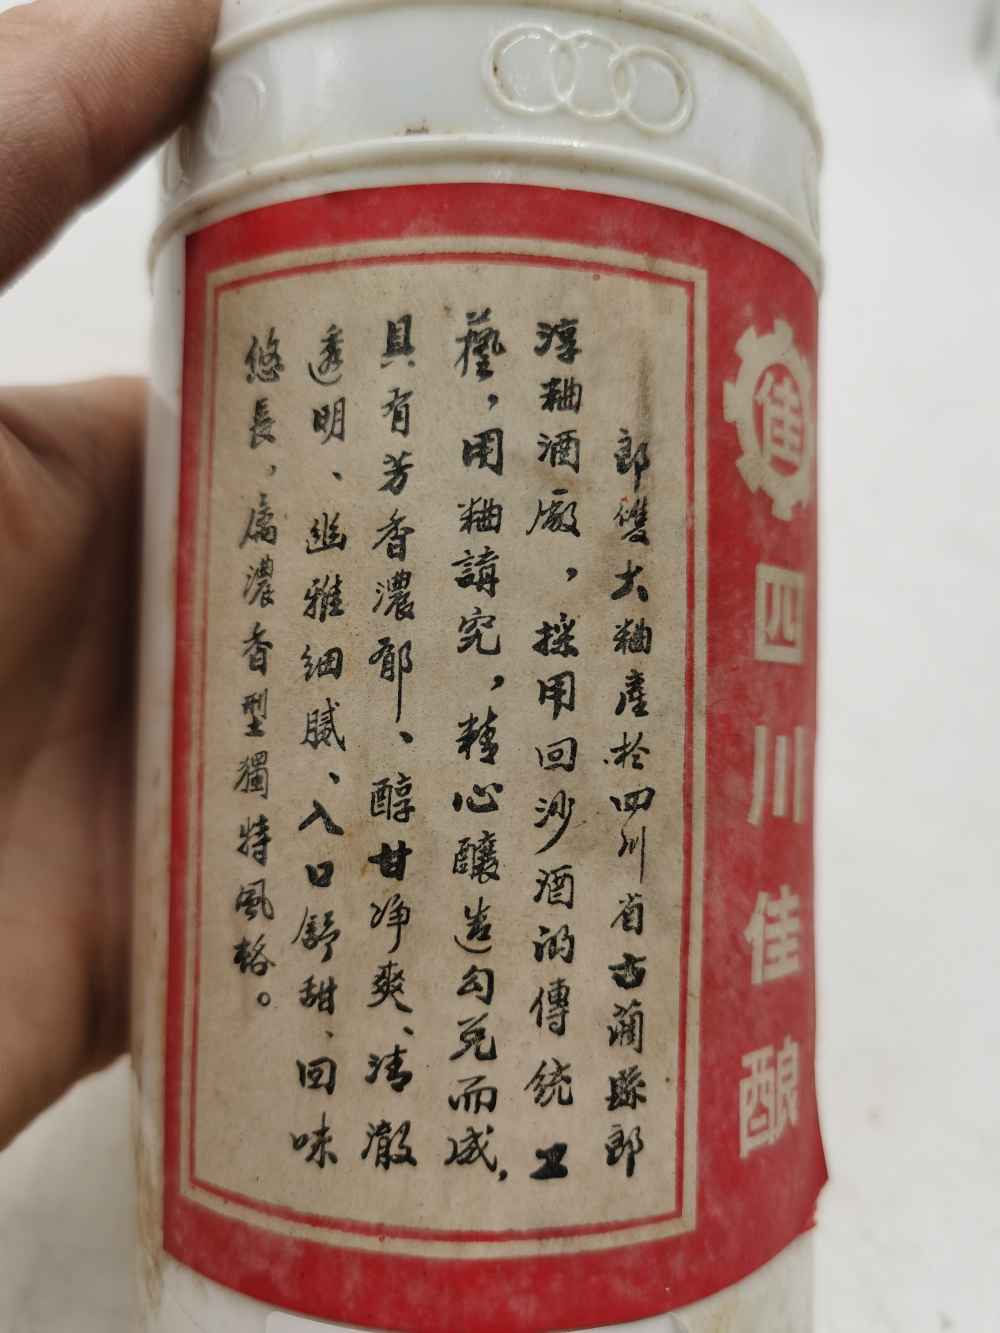 佳
四川佳酿
郎雙大粬產於四川省古藺縣郎
淳粬酒廠，採用回沙酒的傳統工
藝，用粬講究，精心釀造勾兑而成，
具有芳香濃郁、醇甘净爽、清澈
透明、幽雅细腻、入口舒甜、回味
悠長，屬濃香型獨特風格。